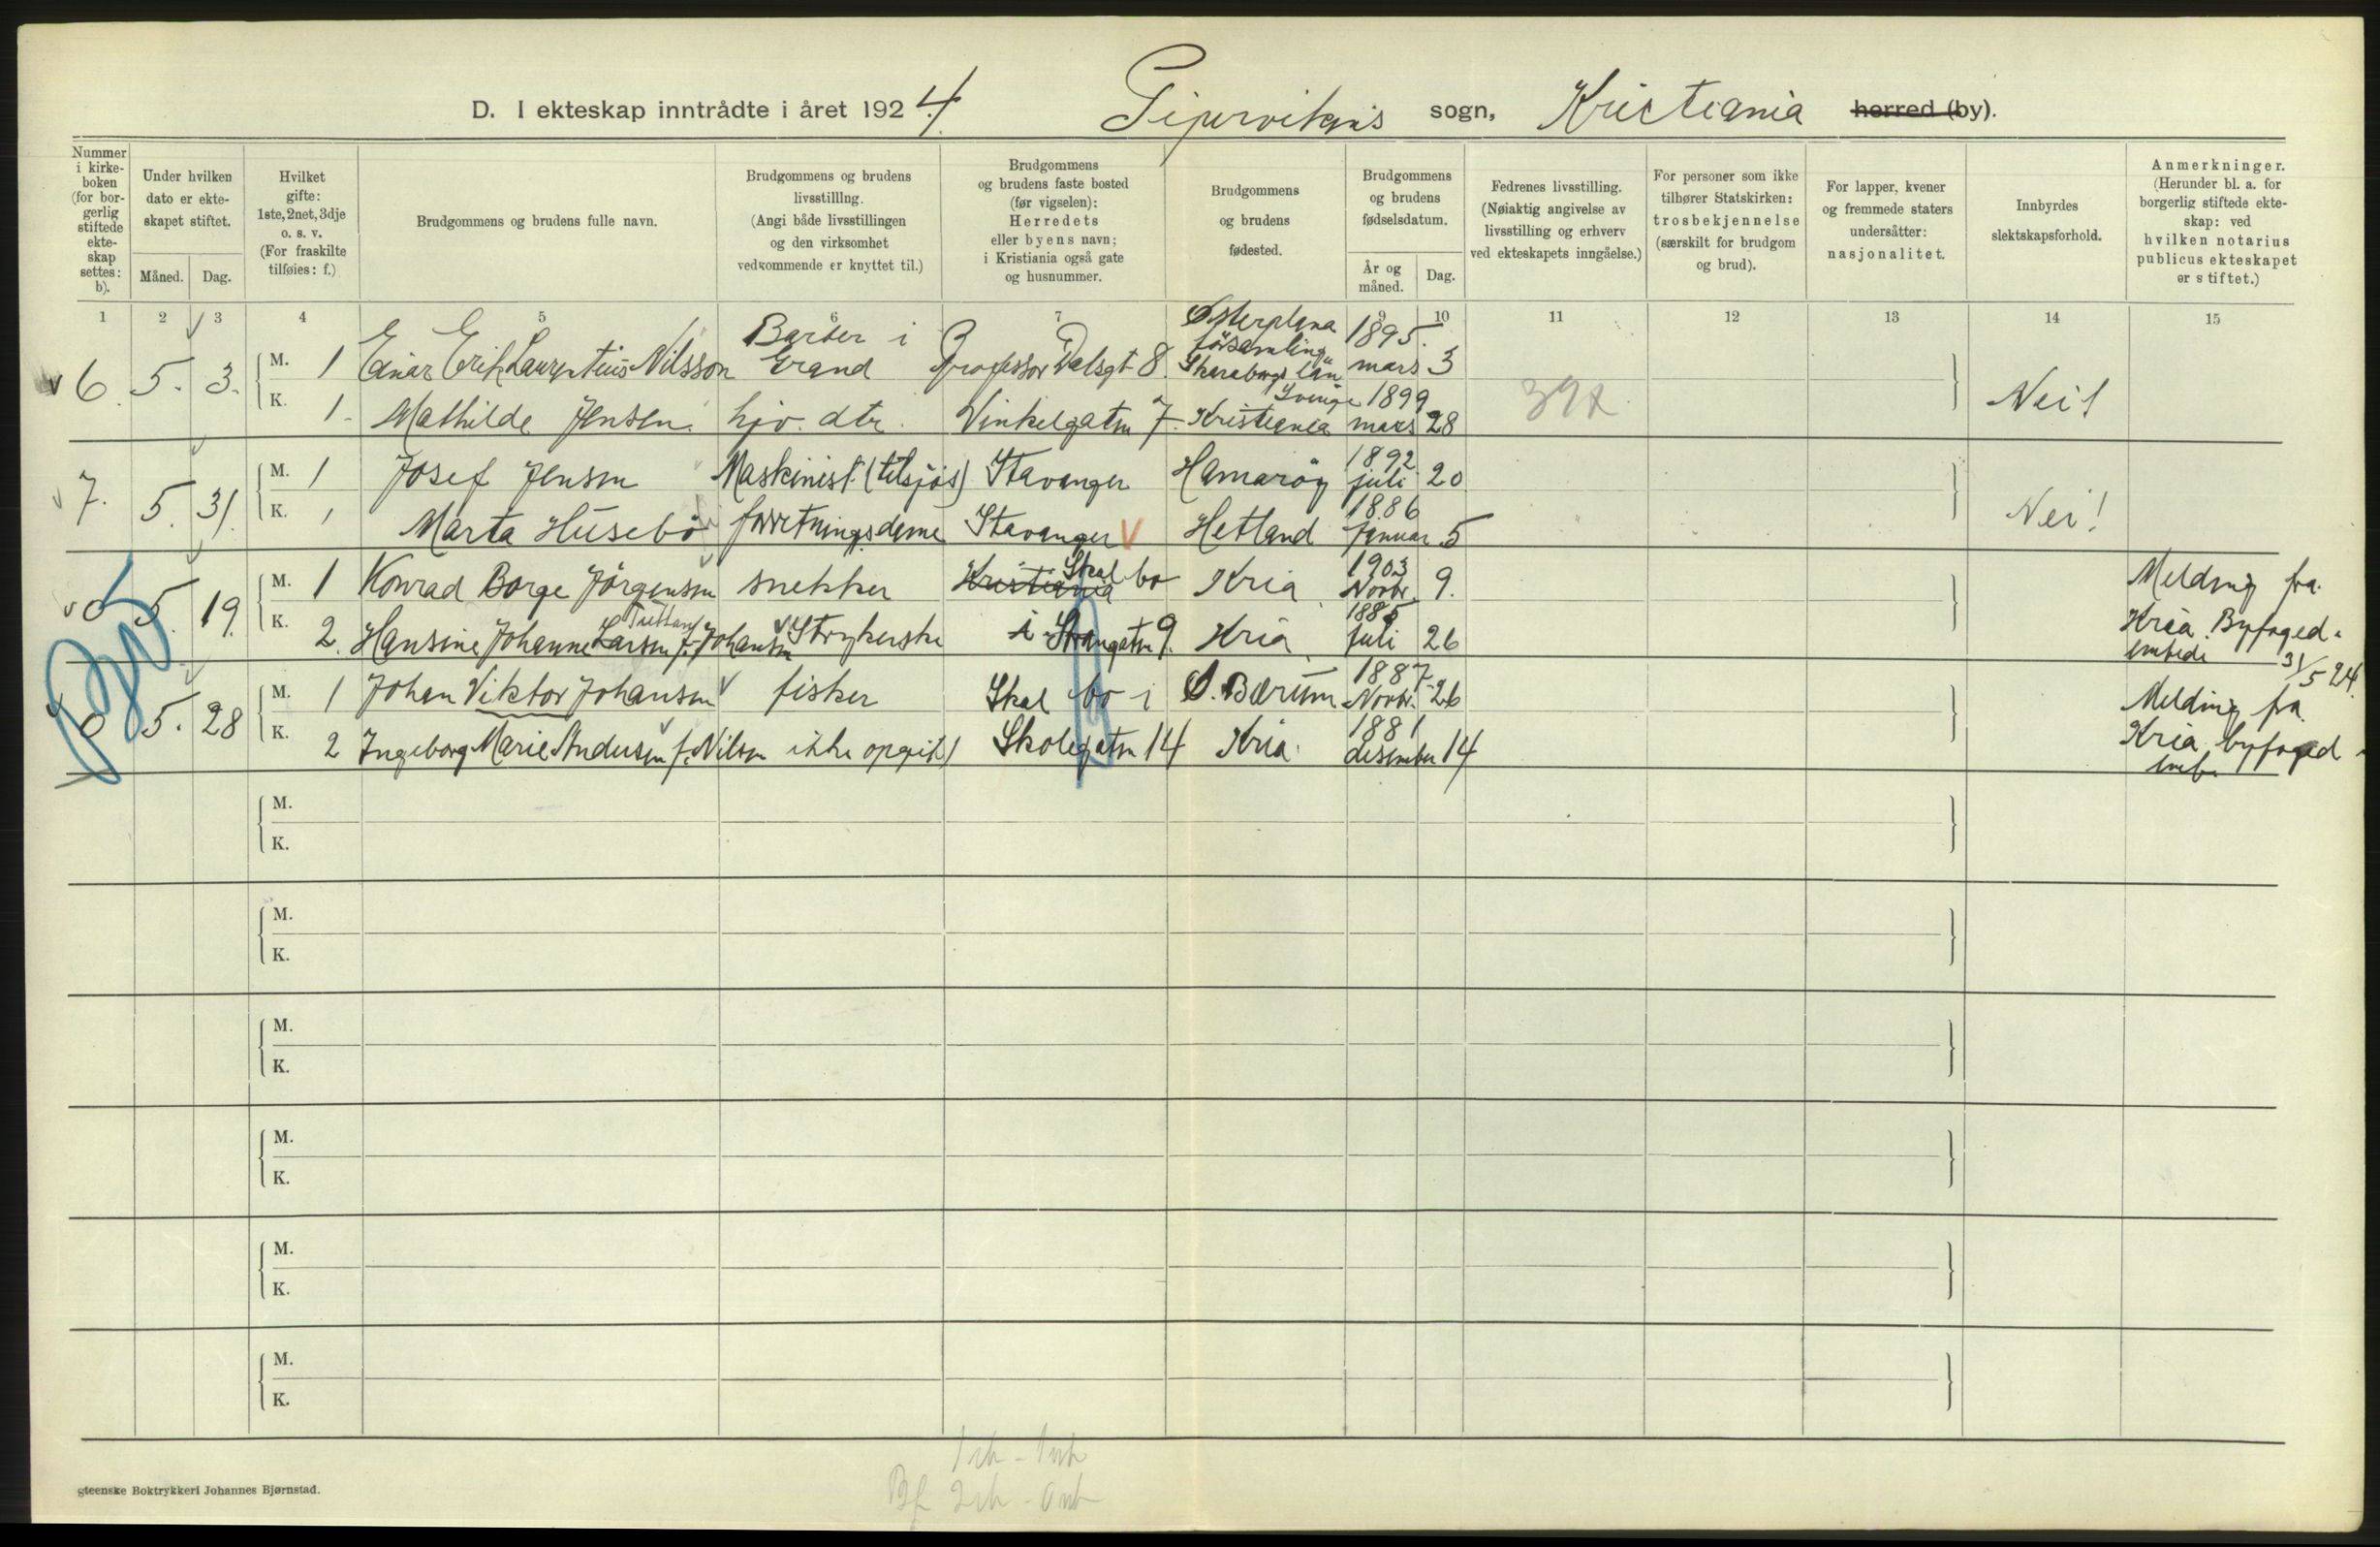 D. I ekteskap inntrådte i året 1924. Pipervikens sogn, Kristiania herred (by).
Nummer i kirke-boken (for bor-gerlig stiftede ekte-skap settes: b).
Under hvilken dato er ekte-skapet stiftet.
Måned. Dag.
Hvilket gifte: 1ste, 2net, 3dje o. s. v. (For fraskilte tilføies: f.)
Brudgommens og brudens fulle navn.
Brudgommens og brudens livsstilllng. (Angi både livsstillingen og den virksomhet vedkommende er knyttet til.)
Brudgommens og brudens faste bosted (før vigselen): Herredets eller byens navn; i Kristiania også gate og husnummer.
Brudgommens og brudens fødested.
Brudgommens og brudens fødselsdatum.
År og måned. Dag.
Fedrenes livsstilling. (Nøiaktig angivelse av livsstilling og erhverv ved ekteskapets inngåelse.)
For personer som ikke tilhører Statskirken: trosbekjennelse (særskilt for brudgom og brud).
For lapper, kvener og fremmede staters undersåtter: nasjonalitet.
Innbyrdes slektskapsforhold.
Anmerkninger. (Herunder bl. a. for borgerlig stiftede ekte-skap: ved hvilken notarius publicus ekteskapet er stiftet.)
1 2 3 4 5 6 7 8 9 10 11 12 13 14 15
6. 5. 3. M. 1 Einar Erik Laurentius Nilsson Barber i Grand Professor Dalsgt 8. Österplana församling Skaraborgs län Sverige 1895. mars 3
K. 1 Mathilde Jensen. hjv. dtr. Vinkelgaten 7. Kristiania 1899 mars 28 Nei!
7. 5. 31. M. 1 Josef Jensen Maskinist (tilsjös) Stavanger Hamaröy 1892 juli 20
K. 1 Marta Husebö forretningsdame Stavanger Hetland 1886 Januar 5 Nei!
0 5. 19. M. 1 Konrad Borge Jörgensen snekker Kristiania Skal bo Kria 1903 Novbr. 9. Melding fra
K. 2. Hansine Johanne Larsen f. Johansen Strykerske i 9. Kria 1885 Juli 26 Kria Byfoged-
embede 31/5 24.
0 5. 28 M. 1 Johan Viktor Johansen fisker Skal bo i Ø. Bærum 1887 Novbr. 26 Melding fra
K. 2 Ingeborg Marie Andersen f. Nilsen ikke opgit) Skolegaten 14 Kria. 1881 desember 14 Kria byfoged-
emb.
M.
K.
M.
K.
M.
K.
M.
K.
M.
K.
M.
K.
gteenske Boktrykkeri Johannes Bjørnstad.